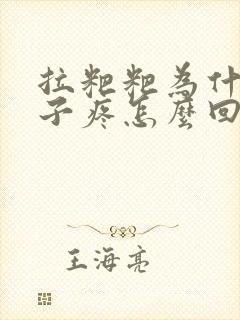 拉粑粑為什
子疼怎麼回
王海亮